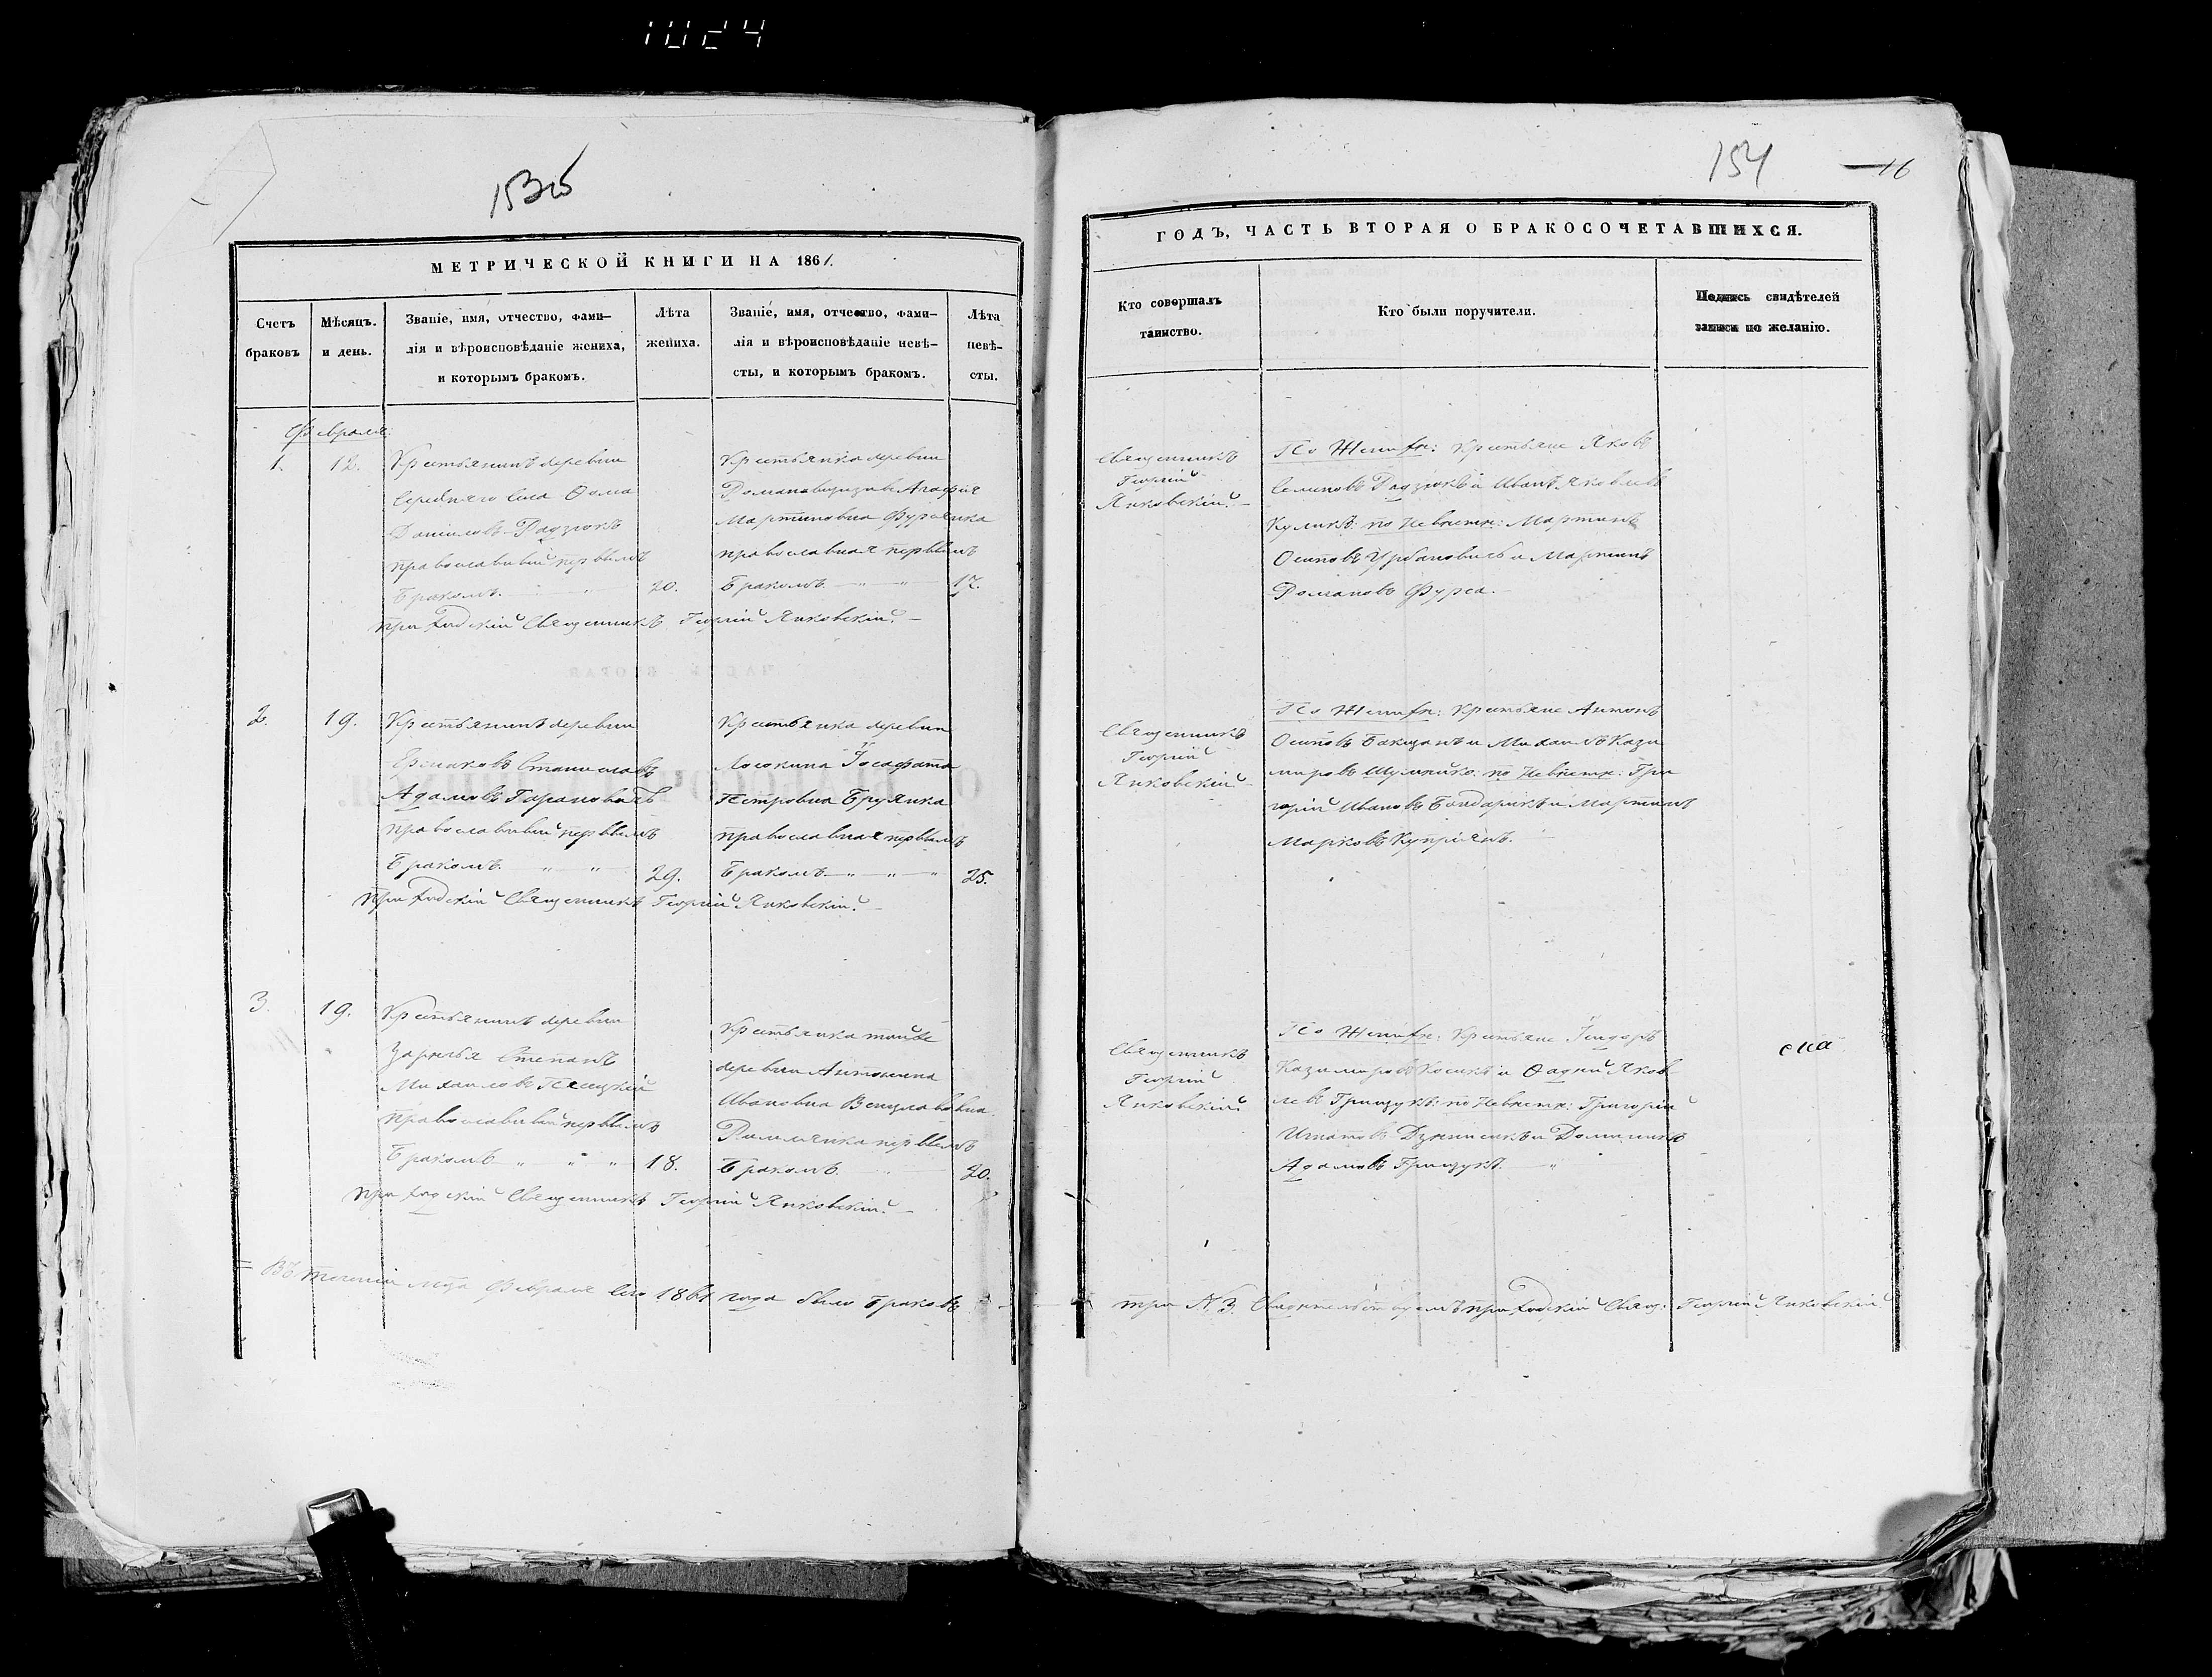 1024
153об
МЕТРИЧЕСКОЙ КНИГИ НА 1861.
Счетъ браковъ
Мѣсяцъ. и день.
Званіе, имя, отчество, фами-
лія и вѣроисповѣданіе жениха,
и которымъ бракомъ.
Лѣта
жениха.
Званіе, имя, отчество, фами-
лія и вѣроисповѣданіе невѣ-
сты, и которымъ бракомъ.
Лѣта
невѣ-
сты.
Февраля:
1. 12.
Крестьянинъ деревни
Середняго Села Ѳома
Даниловъ Радзюкъ
православный первымъ
бракомъ. 20.
Крестьянка деревни
Агафія
Мартиновна
православная первымъ
бракомъ. 17.
приходскій Священникъ Георгій Янковскій.
2. 19.
Крестьянинъ деревни
Ермаковъ Станиславъ
Адамовъ
православный первымъ
бракомъ. 29.
Крестьянка деревни
Лосокина Іосафата
Петровна Бруянка
православная первымъ
бракомъ 25.
приходскій Священникъ Георгій Янковскій.
3. 19.
Крестьянинъ деревни
Зарѣчья Степанъ
Михаиловъ
православный первымъ
бракомъ 18.
Крестьянка тойже
деревни Антонина
Ивановна
Римлянка первымъ
бракомъ. 20.
приходскій Священникъ Георгій Янковскій.
Въ теченіи мца Февраля сего 1861 года было браковъ
154
16
ГОДЪ, ЧАСТЬ ВТОРАЯ О БРАКОСОЧЕТАВШИХСЯ.
Кто совершалъ
таинство.
Кто были поручители.
Подпись свидѣтелей
записи по желанію.
Священникъ
Георгій
Янковскій.
По Женихѣ: Крестьяне Яковъ
Семеновъ Радзюкъ и Иванъ Яковлевъ
Куликъ: по Невѣстѣ: Мартинъ
Осиповъ Урбановичъ и Мартинъ
Романовъ Фурса.
Священникъ
Георгій
Янковскій
По Женихѣ: Крестьяне Антонъ
Осиповъ и Михаилъ Кази
мировъ Шумейко: по Невѣстѣ: Гри
горій Ивановъ Бондарикъ и Мартинъ
Марковъ Купріянъ.
Священникъ
Георгій
Янковскій
По Женихѣ: Крестьяне
Казимировъ Косикъ и Ѳадей Яков
левъ Грицукъ: по Невѣстѣ: Григорій
Игнатовъ и Доминикъ
Адамовъ Грицукъ.
три N. 3. Свидѣтельствуемъ приходскій Свящ: Георгій Янковскій.